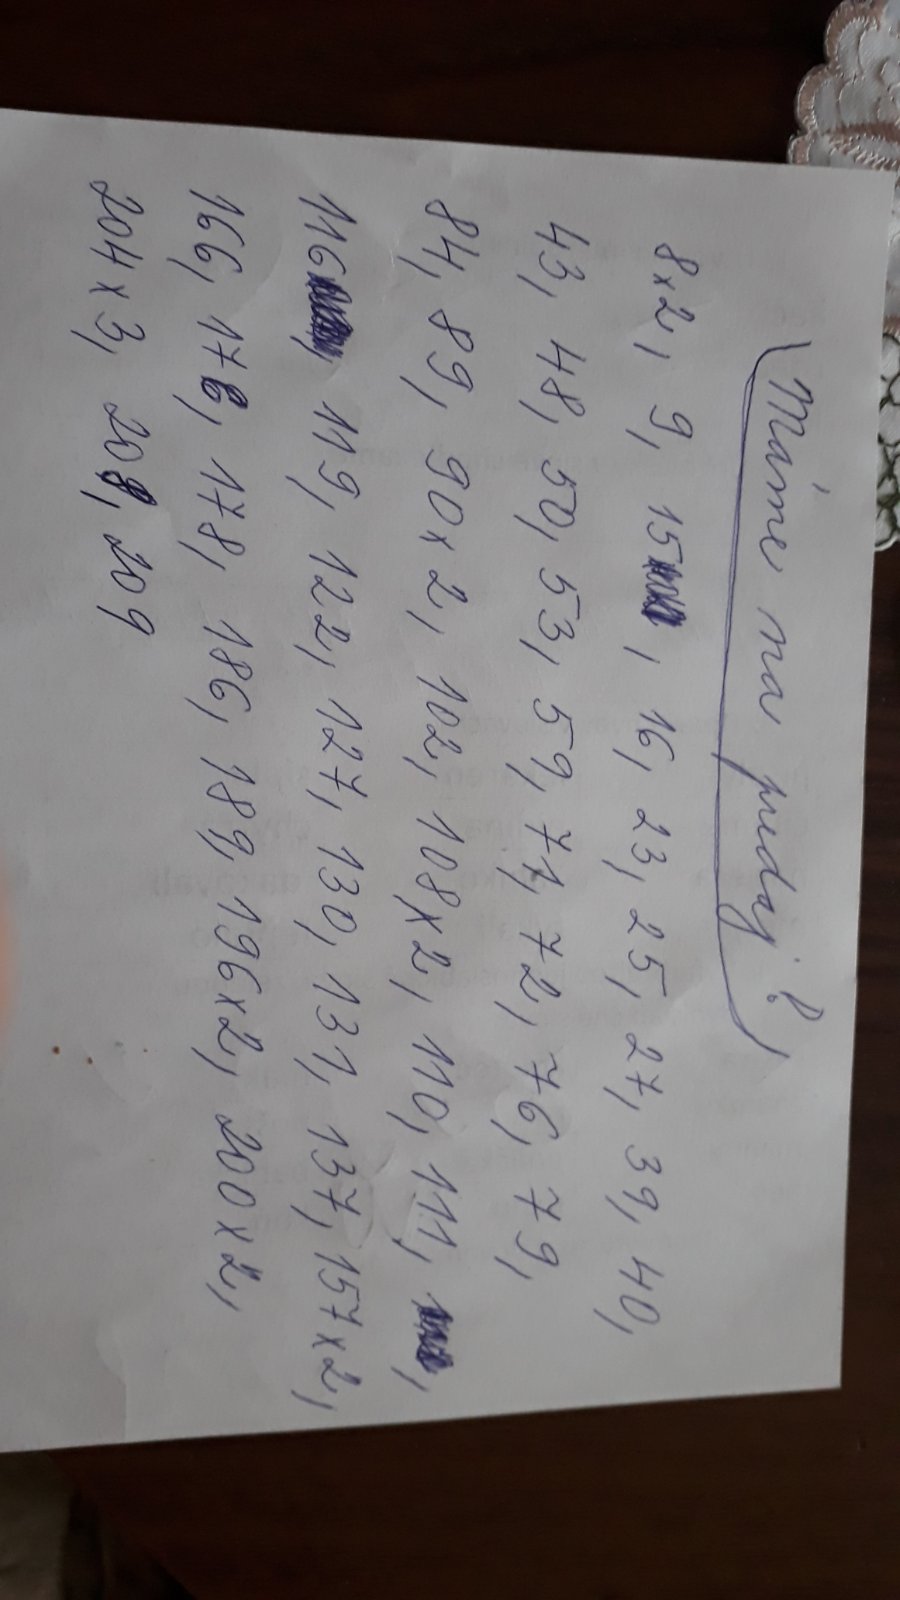 Máme na predaj?
8x2, 9, 15, 16, 23, 25, 27, 39, 40,
43, 48, 50, 53, 59, 71, 72, 76, 79,
84, 89, 90x2, 102, 108x2, 110, 111,
116, 119, 122, 127, 130, 131, 137, 157x2,
166, 178, 186, 189, 196x2, 200x2,
204x3, 209